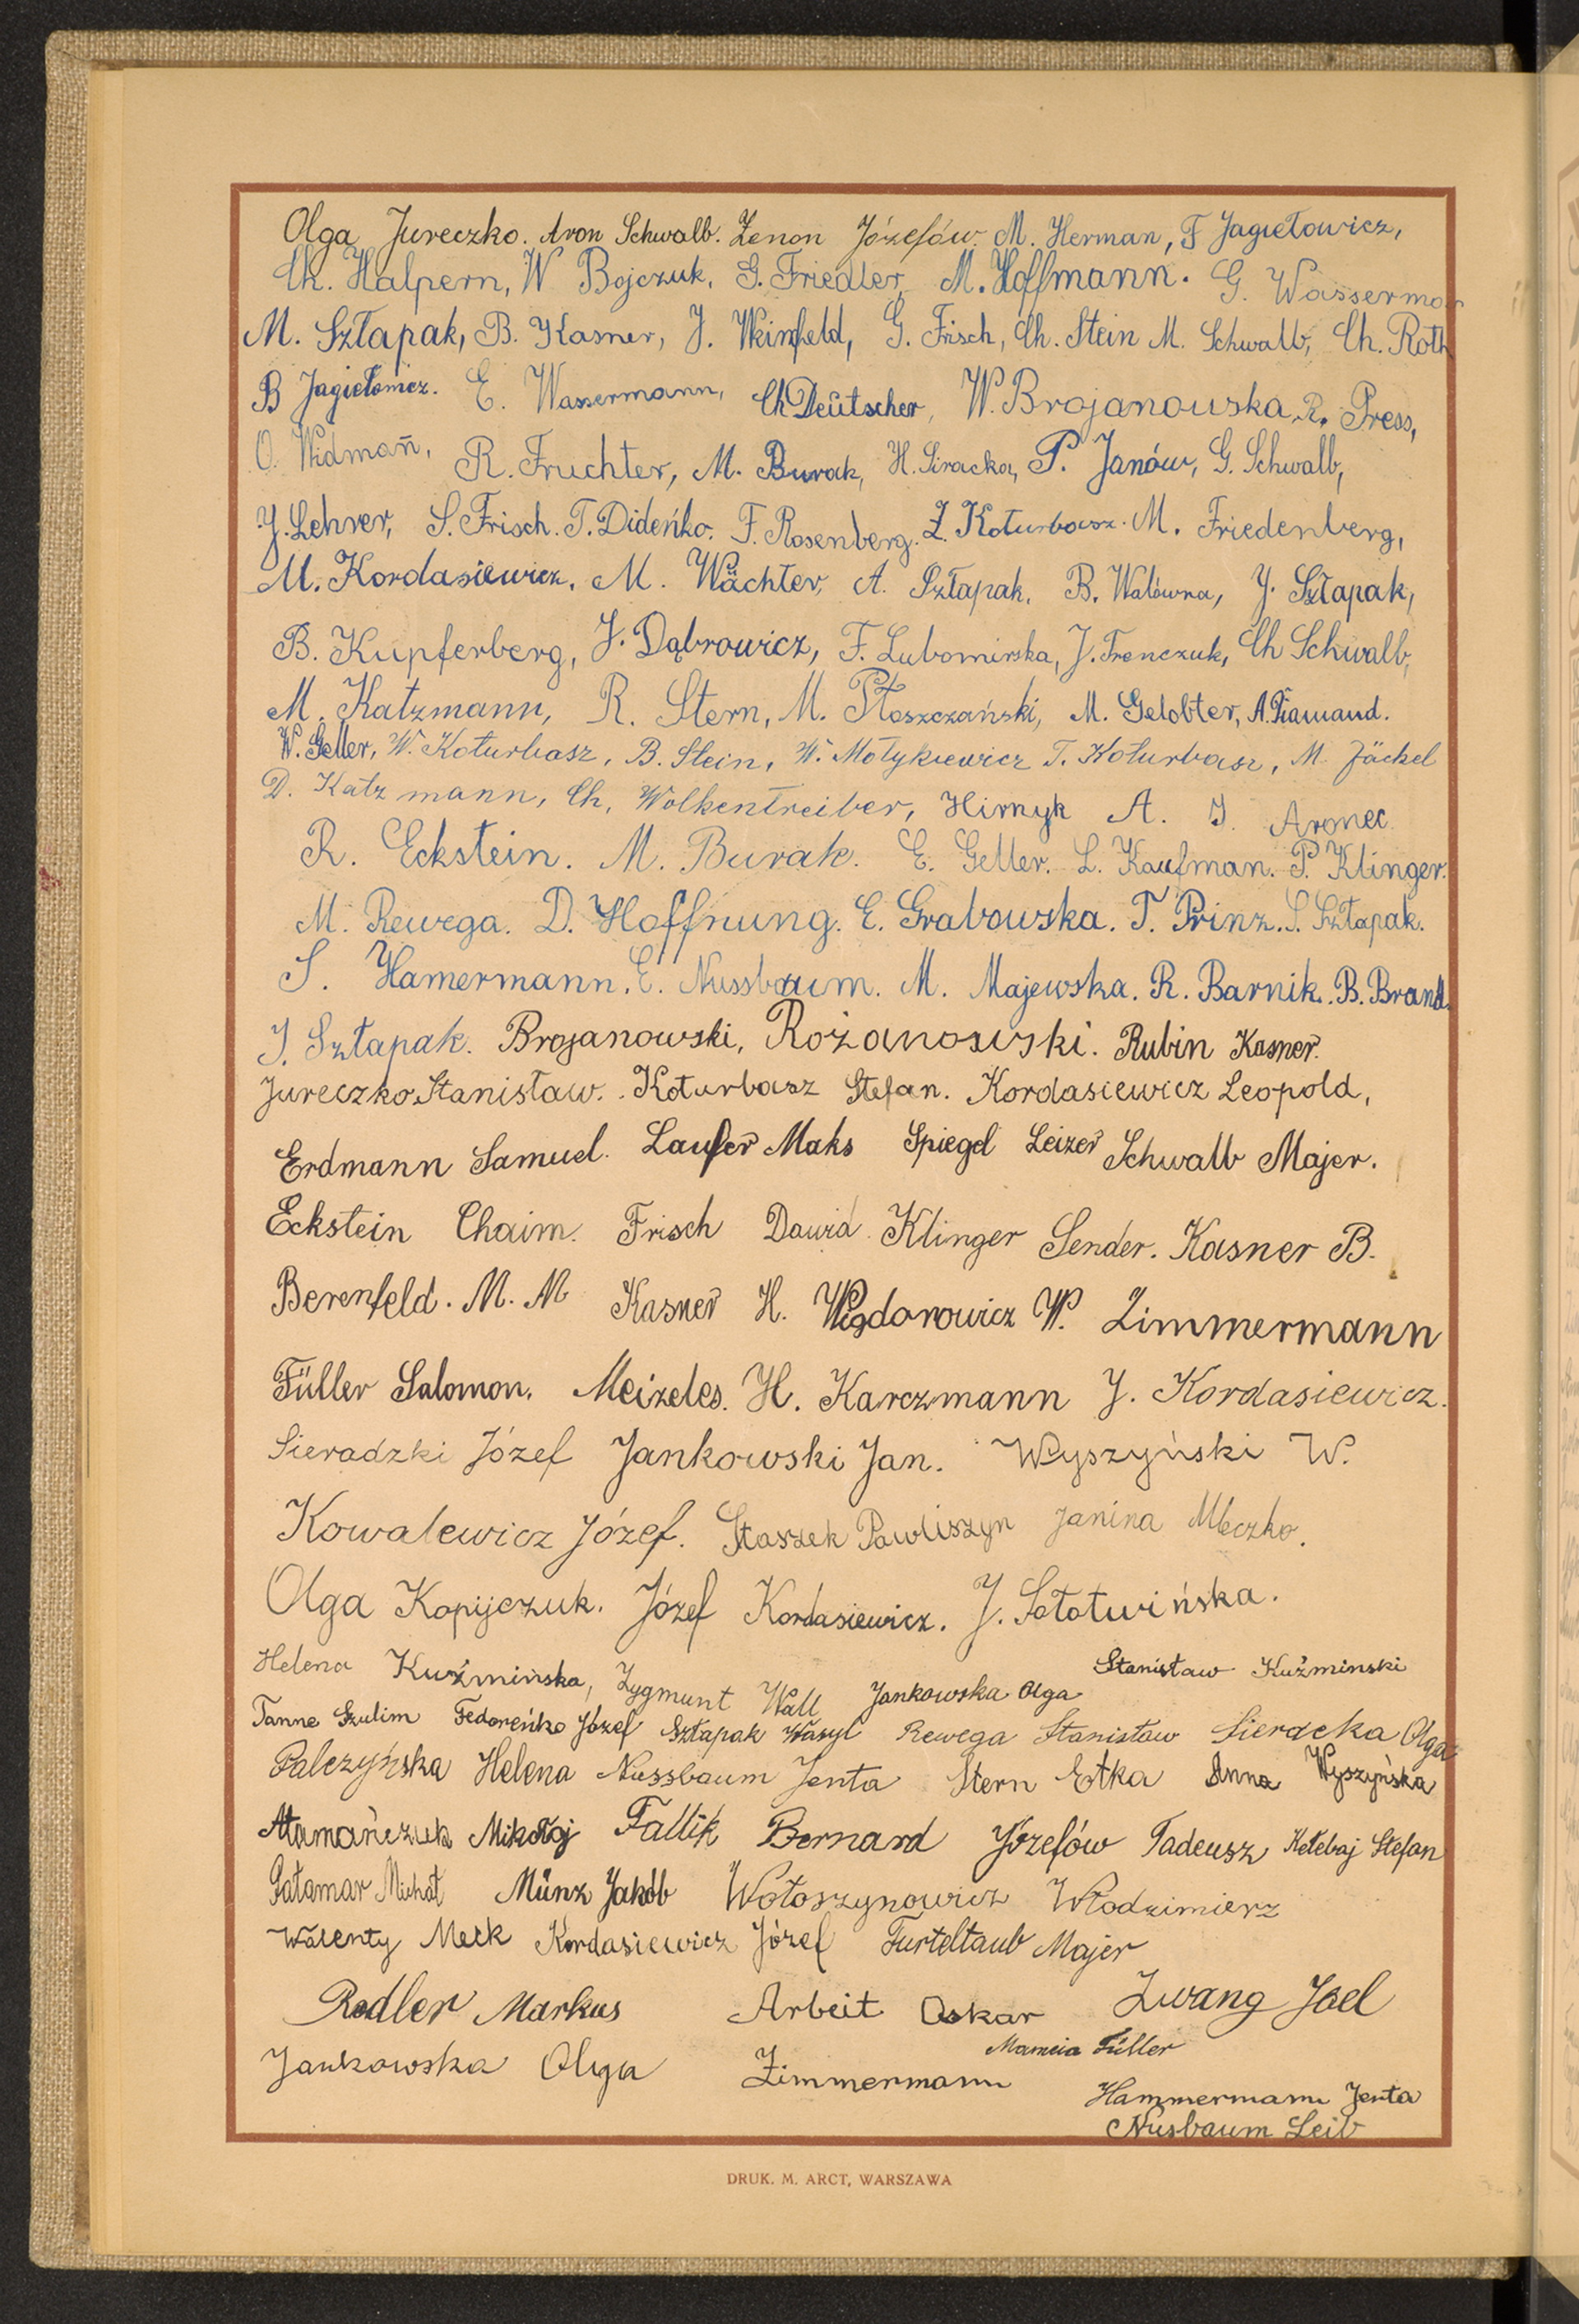 Olga Jureczko. Aron Schwalb. Zenon Józefów. M. Herman, F Jagiełowicz,
Ch. Halpern, W Bojczuk, G. Friedler, M. Hoffmann. G. Wasserman
M. Szłapak, B. Kasner, J. Weinfeld, G. Frisch, Ch. Stein M. Schwalb, Ch. Roth
B Jagiełowicz. E. Wassermann, Ch Deutscher, W. Brojanowska, R. Press,
O. Widmañ, R. Fruchter, M. Burak, H. Siracka, P. Janów, G. Schwalb,
J. Lehrer, S. Frisch. T. Dideńko. F. Rosenberg. Z. Koturbasz. M. Friedenberg,
M. Kordasiewicz, M. Wächter, A. Szłapak, B. Walówna, J. Szłapak,
B. Kupferberg, J. Dąbrowicz, F. Lubomirska, J. Frenczuk, Ch Schwalb,
M. Katzmann, R. Stern, M. Płoszczański, M. Gelobter, A.
W. Geller, W. Koturbasz, B. Stein, W. Motykiewicz T. Koturbasz, M. Jäckel
D. Katzmann, Ch. Wolkentreiber, Hirnyk A. J. Aronec
R. Eckstein. M. Burak. E. Geller. L. Kaufman. P. Klinger.
M. Rewega. D. Hoffnung. E. Grabowska. T. Prinz. S. Szłapak.
S. Hamermann. E. Nussbaum. M. Majewska. R. Barnik. B. Brand.
J. Szłapak. Brojanowski, Rożanowski. Rubin Kasner.
Jureczko Stanisław. Koturbasz Stefan. Kordasiewicz Leopold,
Erdmann Samuel. Laufer Maks Spiegel Leizer Schwalb Majer.
Eckstein Chaim. Frisch Dawid Klinger Sender. Kasner B.
Berenfeld. M. M Kasner H. Wigdorowicz W. Zimmermann
Füller Salomon. Meizeles. H. Karczmann J. Kordasiewicz.
Sieradzki Józef Jankowski Jan. Wyszyński W.
Kowalewicz Józef. Staszek Pawliszyn Janina Mleczko.
Olga Kopijczuk. Józef Kordasiewicz. J. Sołotwińska.
Helena Kuźmińska, Zygmunt Wall Jankowska Olga Stanisław Kuźminski
Tanne Szulim Fedoreńko Józef Szłapak Wasyl Rewega Stanisław Sieracka Olga
Palczyńska Helena Nussbaum Jenta Stern Etka Anna Wyszyńska
Atamańczuk Mikołaj Fallik Bernard Józefów Tadeusz Kełebaj Stefan
Gałamar Michał Münz Jakób Wołoszynowicz Włodzimierz
Walenty Meck Kordasiewicz Józef Turteltaub Majer
Redler Markus Arbeit Oskar Zwang Joel
Jankowska Olga Zimmermann Mamcia Füller
Hammermann Jenta
Nusbaum Leib
DRUK. M. ARCT, WARSZAWA